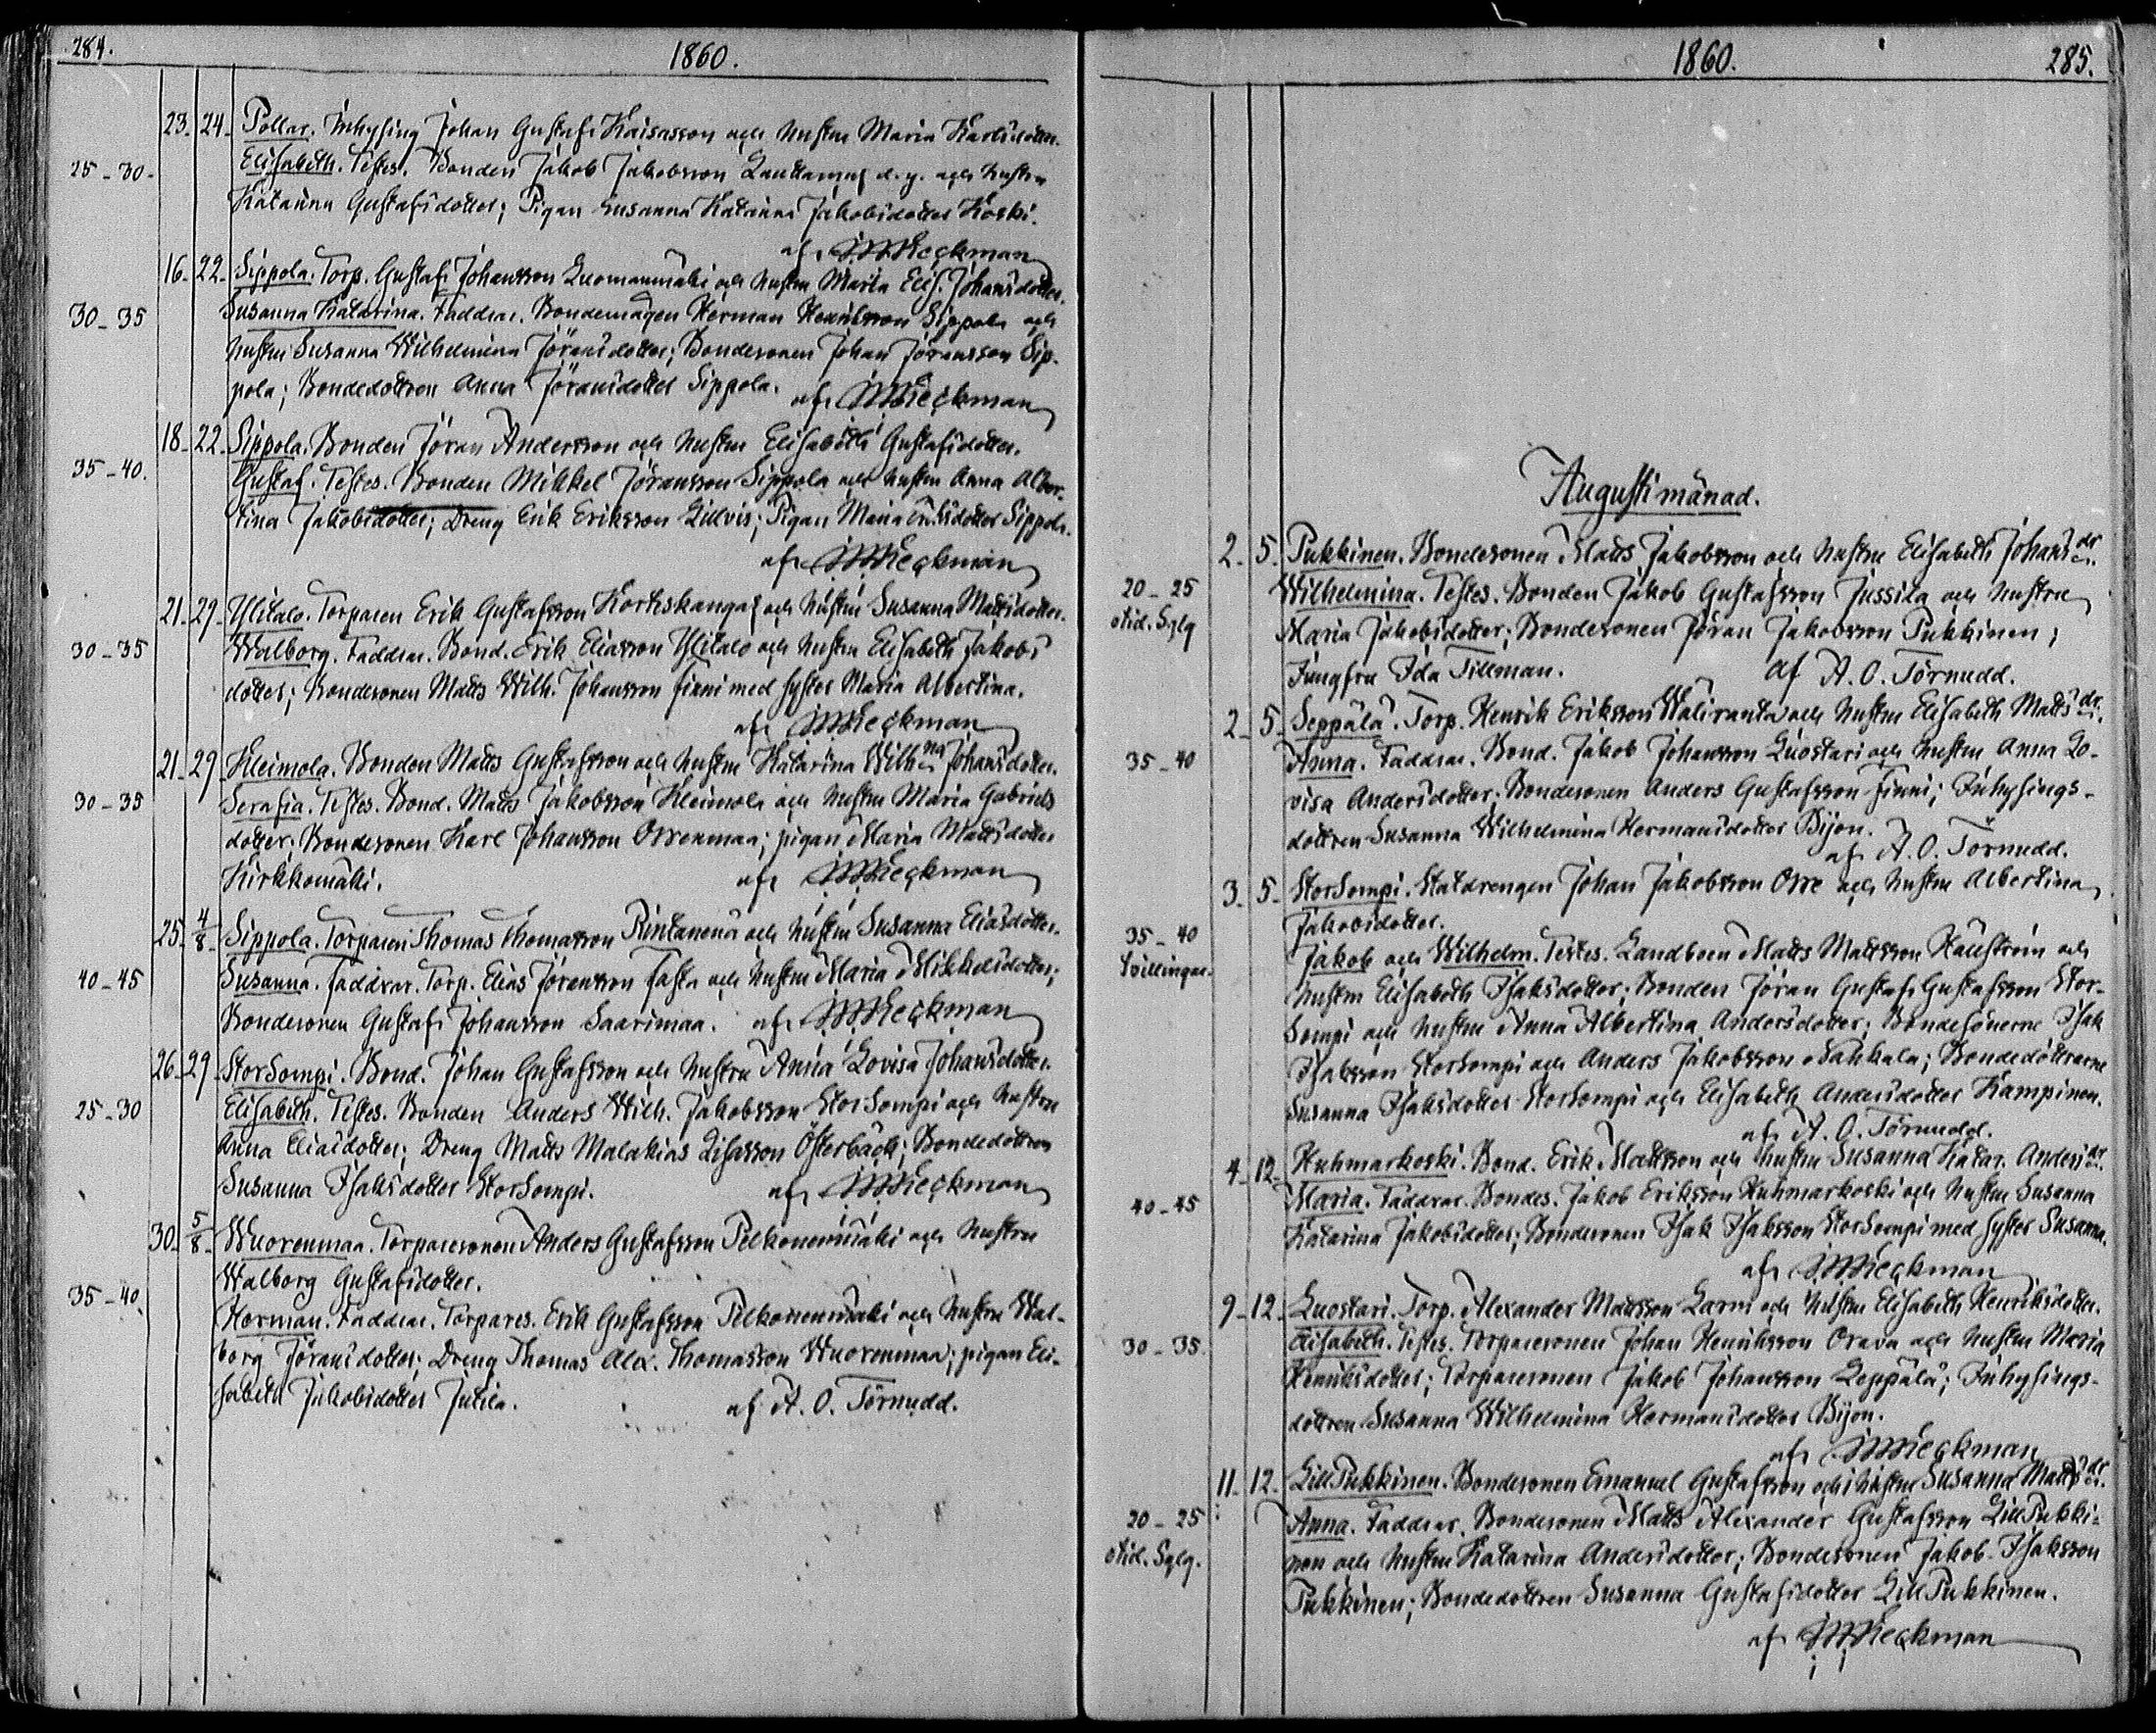 284.
1860.
23. 24. Pollar. Inhysing Johan Gustaf Kaisasson och hustru Maria Karlsdotter.
25-30. Elisabeth. Testes. Bonden Jakob Jakobsson d. y. och hustru
Katarina Gustafsdotter; Pigan Susanna Katarina Jakobsdotter Koski.
af Heckman
16. 22. Sippola. Torp. Gustaf Johansson Luomanmäki och hustru Maria Elis. Johansdotter.
30-35 Susanna Katarina. Faddrar. Bondemågen Herman Henriksson Sippola och
hustru Susanna Wilhelmina Jöransdotter; Bondesonen Johan Jöransson Sip-
pola; Bondedottren Anna Jöransdotter Sippola. af Heckman
18. 22. Sippola. Bonden Jöran Andersson och hustru Elisabeth Gustafsdotter.
35-40. Gustaf. Testes. Bonden Mikkel Jöransson Sippola och hustru Anna Alber-
tina Jakobsdotter; Dreng Erik Eriksson Lillvis; Pigan Maria Sippola.
af Heckman
21. 29. Ylitalo. Torparen Erik Gustafsson Korteskangas och hustru Susanna Mattsdotter.
30-35 Walborg. Faddrar. Bond. Erik Eliasson Ylitalo och hustru Elisabeth Jakobs
dotter; Bondesonen Matts Wilh. Johansson Finni med syster Maria Albertina.
af Heckman
21. 29. Kleimola. Bonden Matts Gustafsson och hustru Katarina Wilh:na Johansdotter.
30-35 Serafia. Testes. Bond. Matts Jakobsson Kleimola och hustru Maria Gabriels
dotter; Bondesonen Karl Johansson Orrenmaa; pigan Maria Mattsdotter
Kirkkomäki. af Heckman
25. 4/8. Sippola. Torparen Thomas Thomasson Rintanena och hustru Susanna Eliasdotter.
40-45 Susanna. Faddrar. Torp. Elias Jöransson Fasta och hustru Maria Mikkelsdotter;
Bondesonen Gustaf Johansson Saarimaa. af Heckman
26. 29. StorSompi. Bond. Johan Gustafsson och hustru Anna Lovisa Johansdotter.
25-30 Elisabeth. Testes. Bonden Anders Wilh. Jakobsson StorSompi och hustru
Anna Eliasdotter; Dreng Matts Malakias Lisasson Österback; Bondedottren
Susanna Isaksdotter StorSompi. af Heckman
30. 5/8. Wuorenmaa. Torparesonen Anders Gustafsson Pelkonenmäki och hustru
Walborg Gustafsdotter.
35-40. Herman. Faddrar. Torpares. Erik Gustafsson Pelkonenmäki och hustru Wal-
borg Jöransdotter; Dreng Thomas Alex. Thomasson Wuorenmaa; pigan Eli-
sabeth Jakobsdotter Jutila. af A. O. Törnudd.
1860. 285.
Augusti månad.
2. 5. Pukkinen. Bondesonen Matts Jakobsson och hustru Elisabeth Johansdr.
20-25 Wilhelmina. Testes. Bonden Jakob Gustafsson Jussila och hustru
otid. Sglg Maria Jakobsdotter; Bondesonen Jöran Jakobsson Pukkinen;
Jungfru Ida Tillman. af A. O. Törnudd.
2. 5. Seppälä. Torp. Henrik Eriksson Waliranta och hustru Elisabeth Mattsdr.
35-40 Anna. Faddrar. Bond. Jakob Johansson Luostari och hustru Anna Lo-
visa Andersdotter; Bondesonen Anders Gustafsson Finni; Inhysings-
dottren Susanna Wilhelmina Hermansdotter Bijon.
af A. O. Törnudd.
3. 5. StorSompi. Statdrengen Johan Jakobsson Orre och hustru Albertina
Jakobsdotter.
35-40 Jakob och Wilhelm. Testes. Landboen Matts Mattsson Hällström och
Tvillingar. hustru Elisabeth Isaksdotter; Bonden Jöran Gustaf Gustafsson Stor-
Sompi och hustru Anna Albertina Andersdotter; Bondesönerne Isak
Isaksson StorSompi och Anders Jakobsson Sahkala; Bondedöttrarne
Susanna Isaksdotter StorSompi och Elisabeth Andersdotter Kampinen.
af A. O. Törnudd.
4. 12. Kuhmarkoski. Bond. Erik Mattsson och hustru Susanna Katar. Andersdr.
40-45 Maria. Faddrar. Bondes. Jakob Eriksson Kuhmarkoski och hustru Susanna
Katarina Jakobsdotter; Bondesonen Isak Isaksson StorSompi med syster Susanna.
af Heckman
9. 12. Luostari. Torp. Alexander Mattsson Larni och hustru Elisabeth Henriksdotter.
30-35. Elisabeth. Testes. Torparesonen Johan Henriksson Orava och hustru Maria
Henriksdotter; Torparesonen Jakob Johansson Leppälä; Inhysings-
dottren Susanna Wilhelmina Hermansdotter Bijon.
af Heckman
11. 12. LillPukkinen. Bondesonen Emanuel Gustafsson och hustru Susanna Mattsdr.
20-25 Anna. Faddrar. Bondesonen Matts Alexander Gustafsson LillPukki-
otid. Sglg. nen och hustru Katarina Andersdotter; Bondesonen Jakob Isaksson
Pukkinen; Bondedottren Susanna Gustafsdotter LillPukkinen.
af Heckman